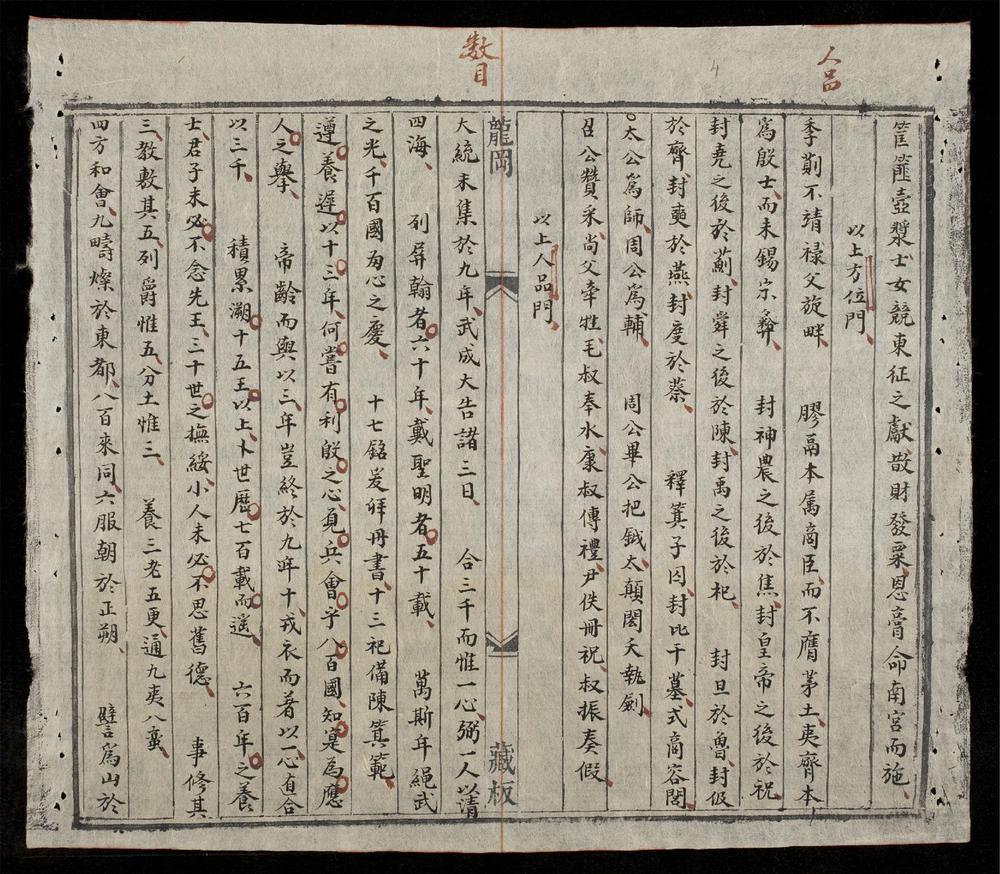 人品
筐篚壺漿、士女競東征之獻、散財發粟、恩膏命南宮而施、
以上方位門、
季鄭不靖、祿父旋畔　膠鬲本属商臣、而不膺茅土、夷齊本
爲殷士、而未錫宗彜、　封神農之後於焦、封皇帝之後於祝、
封堯之後於薊、封舜之後於陳、封禹之後於杞、　封旦於魯、封伋
於齊、封奭於燕、封度於蔡、　釋箕子囚、封比干墓、式商容閭、
太公爲師、周公爲輔、　周公畢公把鉞、太顛閎夭執劍、
召公贊采、尚父牽牲、毛叔奉水、康叔傳禮、尹佚冊祝、叔振奏假、
以上人品門、
龍岡
藏板
數目
大統未集於九年、武成大告諸三日、　合三千而惟一心、弼一人以清
四海、　列屏翰者六十年、戴聖明者五十載、　萬斯年繩武
之光、千百國匊心之慶、　十七銘爰拜冊書、十三祀備陳箕範、
遵養遲以十三年、何嘗有利殷之心、覓兵會乎八百國、知寔為應
人之擧、　帝齡而與以三年、豈終於九㫑十、戎衣而著以一心、直合
以三千、　積累溯十五王以上、卜世歷七百載而遥、　六百年之養
士、君子未必不念先王、三十世之撫綏、小人未必不思舊德、　事修其
三、教敷其五、列爵惟五、分土惟三、　養三老五更、通九夷八蠻、
四方和會、九疇燦於東都、八百來同、六服朝於正朔、　譬爲山於